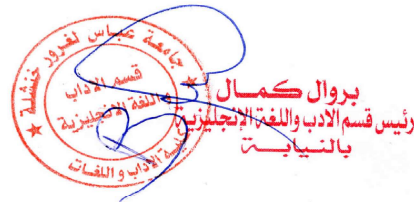 جامعة عباس لغرور خنشلة
قسم الآداب
واللغة الانجليزية
كلية الآداب و اللغات
بروال كمال
رئيس قسم الادب واللغة الانجليزية
بالنيابة